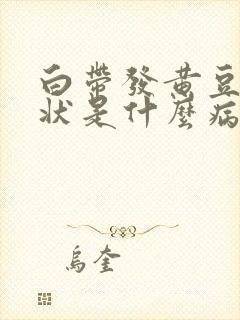 白帶發黄豆
狀是什麼病
烏奎